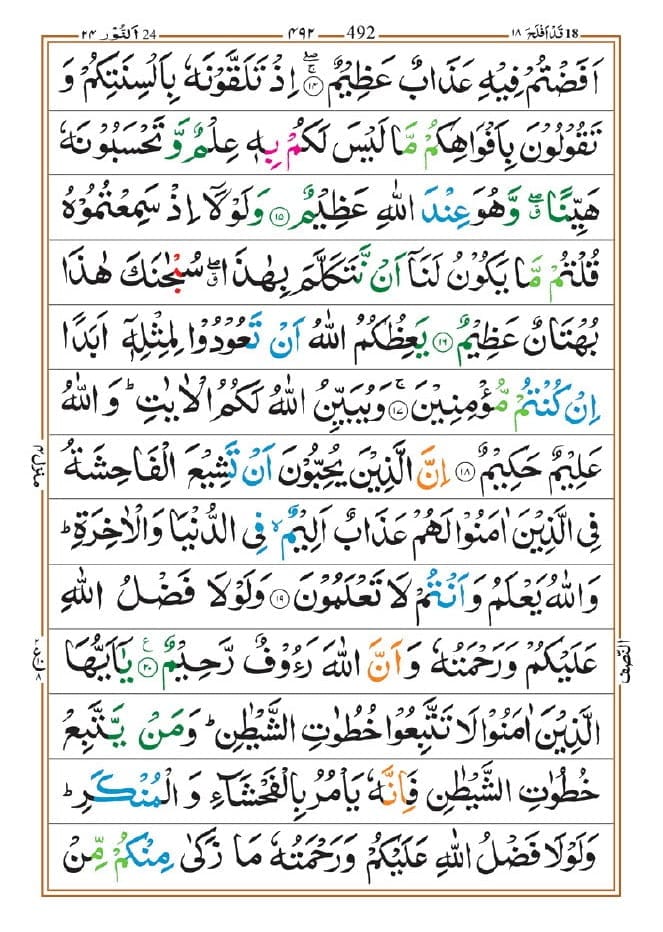 18 قَدْ اَفْلَحَ ۱۸ 492 ۴۹۲ 24 اَلنُّوْر ۲۴
اَفَضْتُمْ فِيْهِ عَذَابٌ عَظِيْمٌ ۚۖ۝۱۴ اِذْ تَلَقَّوْنَهٗ بِاَلْسِنَتِكُمْ وَ
تَقُوْلُوْنَ بِاَفْوَاهِكُمْ مَّا لَيْسَ لَكُمْ بِهٖ عِلْمٌ وَّ تَحْسَبُوْنَهٗ
هَيِّنًا ۖۗ وَّهُوَ عِنْدَ اللّٰهِ عَظِيْمٌ ۝۱۵ وَلَوْلَاۤ اِذْ سَمِعْتُمُوْهُ
قُلْتُمْ مَّا يَكُوْنُ لَنَاۤ اَنْ نَّتَكَلَّمَ بِهٰذَا ۖۗ سُبْحٰنَكَ هٰذَا
بُهْتَانٌ عَظِيْمٌ ۝۱۶ يَعِظُكُمُ اللّٰهُ اَنْ تَعُوْدُوْا لِمِثْلِهٖۤ اَبَدًا
اِنْ كُنْتُمْ مُّؤْمِنِيْنَ ۚ۝۱۷ وَيُبَيِّنُ اللّٰهُ لَكُمُ الْاٰيٰتِ ؕ وَ اللّٰهُ
عَلِيْمٌ حَكِيْمٌ ۝۱۸ اِنَّ الَّذِيْنَ يُحِبُّوْنَ اَنْ تَشِيْعَ الْفَاحِشَةُ
فِى الَّذِيْنَ اٰمَنُوْا لَهُمْ عَذَابٌ اَلِيْمٌ ۙ فِى الدُّنْيَا وَالْاٰخِرَةِ ؕ
وَاللّٰهُ يَعْلَمُ وَ اَنْتُمْ لَا تَعْلَمُوْنَ ۝۱۹ وَلَوْلَا فَضْلُ اللّٰهِ
عَلَيْكُمْ وَرَحْمَتُهٗ وَ اَنَّ اللّٰهَ رَءُوْفٌ رَّحِيْمٌ ۠۝۲۰ يٰۤاَيُّهَا
النّصف
الَّذِيْنَ اٰمَنُوْا لَا تَتَّبِعُوْا خُطُوٰتِ الشَّيْطٰنِ ؕ وَمَنْ يَّتَّبِعْ
خُطُوٰتِ الشَّيْطٰنِ فَاِنَّهٗ يَاْمُرُ بِالْفَحْشَآءِ وَ الْمُنْكَرِ ؕ
وَلَوْلَا فَضْلُ اللّٰهِ عَلَيْكُمْ وَرَحْمَتُهٗ مَا زَكٰى مِنْكُمْ مِّنْ